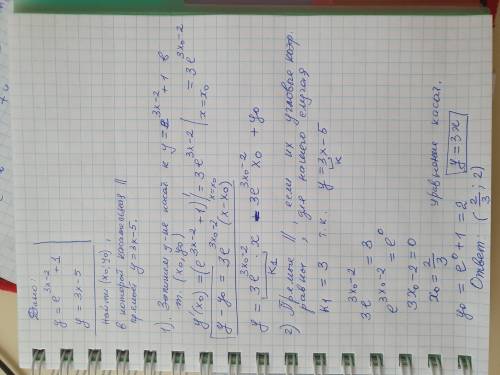 Дано:
y = e^{3x-2} + 1
y = 3x - 5
Найти (x₀, y₀),
в которой касательная ||
прямой y = 3x - 5.
1). Запишем ур-ие касат к y = e^{3x-2} + 1 в
т. (x₀, y₀)
y'(x₀) = (e^{3x-2} + 1)'|_{x=x₀} = 3e^{3x-2}|_{x=x₀} = 3e^{3x₀-2}
y - y₀ = 3e^{3x₀-2} (x - x₀)
y = 3e^{3x₀-2} · x - 3e^{3x₀-2} x₀ + y₀
K₁
2) Прямые ||, если их угловые коэф.
равны, для нашего случая
K₁ = 3 т.к. y = 3x - 5
K
3e^{3x₀-2} = 3
e^{3x₀-2} = e⁰
3x₀ - 2 = 0
x₀ = 2/3
y₀ = e⁰ + 1 = 2
уравнение касат.
y = 3x
Ответ (2/3; 2)